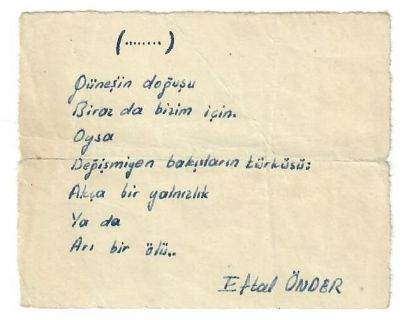 (........)
Güneşin doğuşu
Biraz da bizim için.
Oysa
Değişmiyen bakışların türküsü:
Akça bir yalnızlık
Ya da
Arı bir ölü..
Eftal ÖNDER